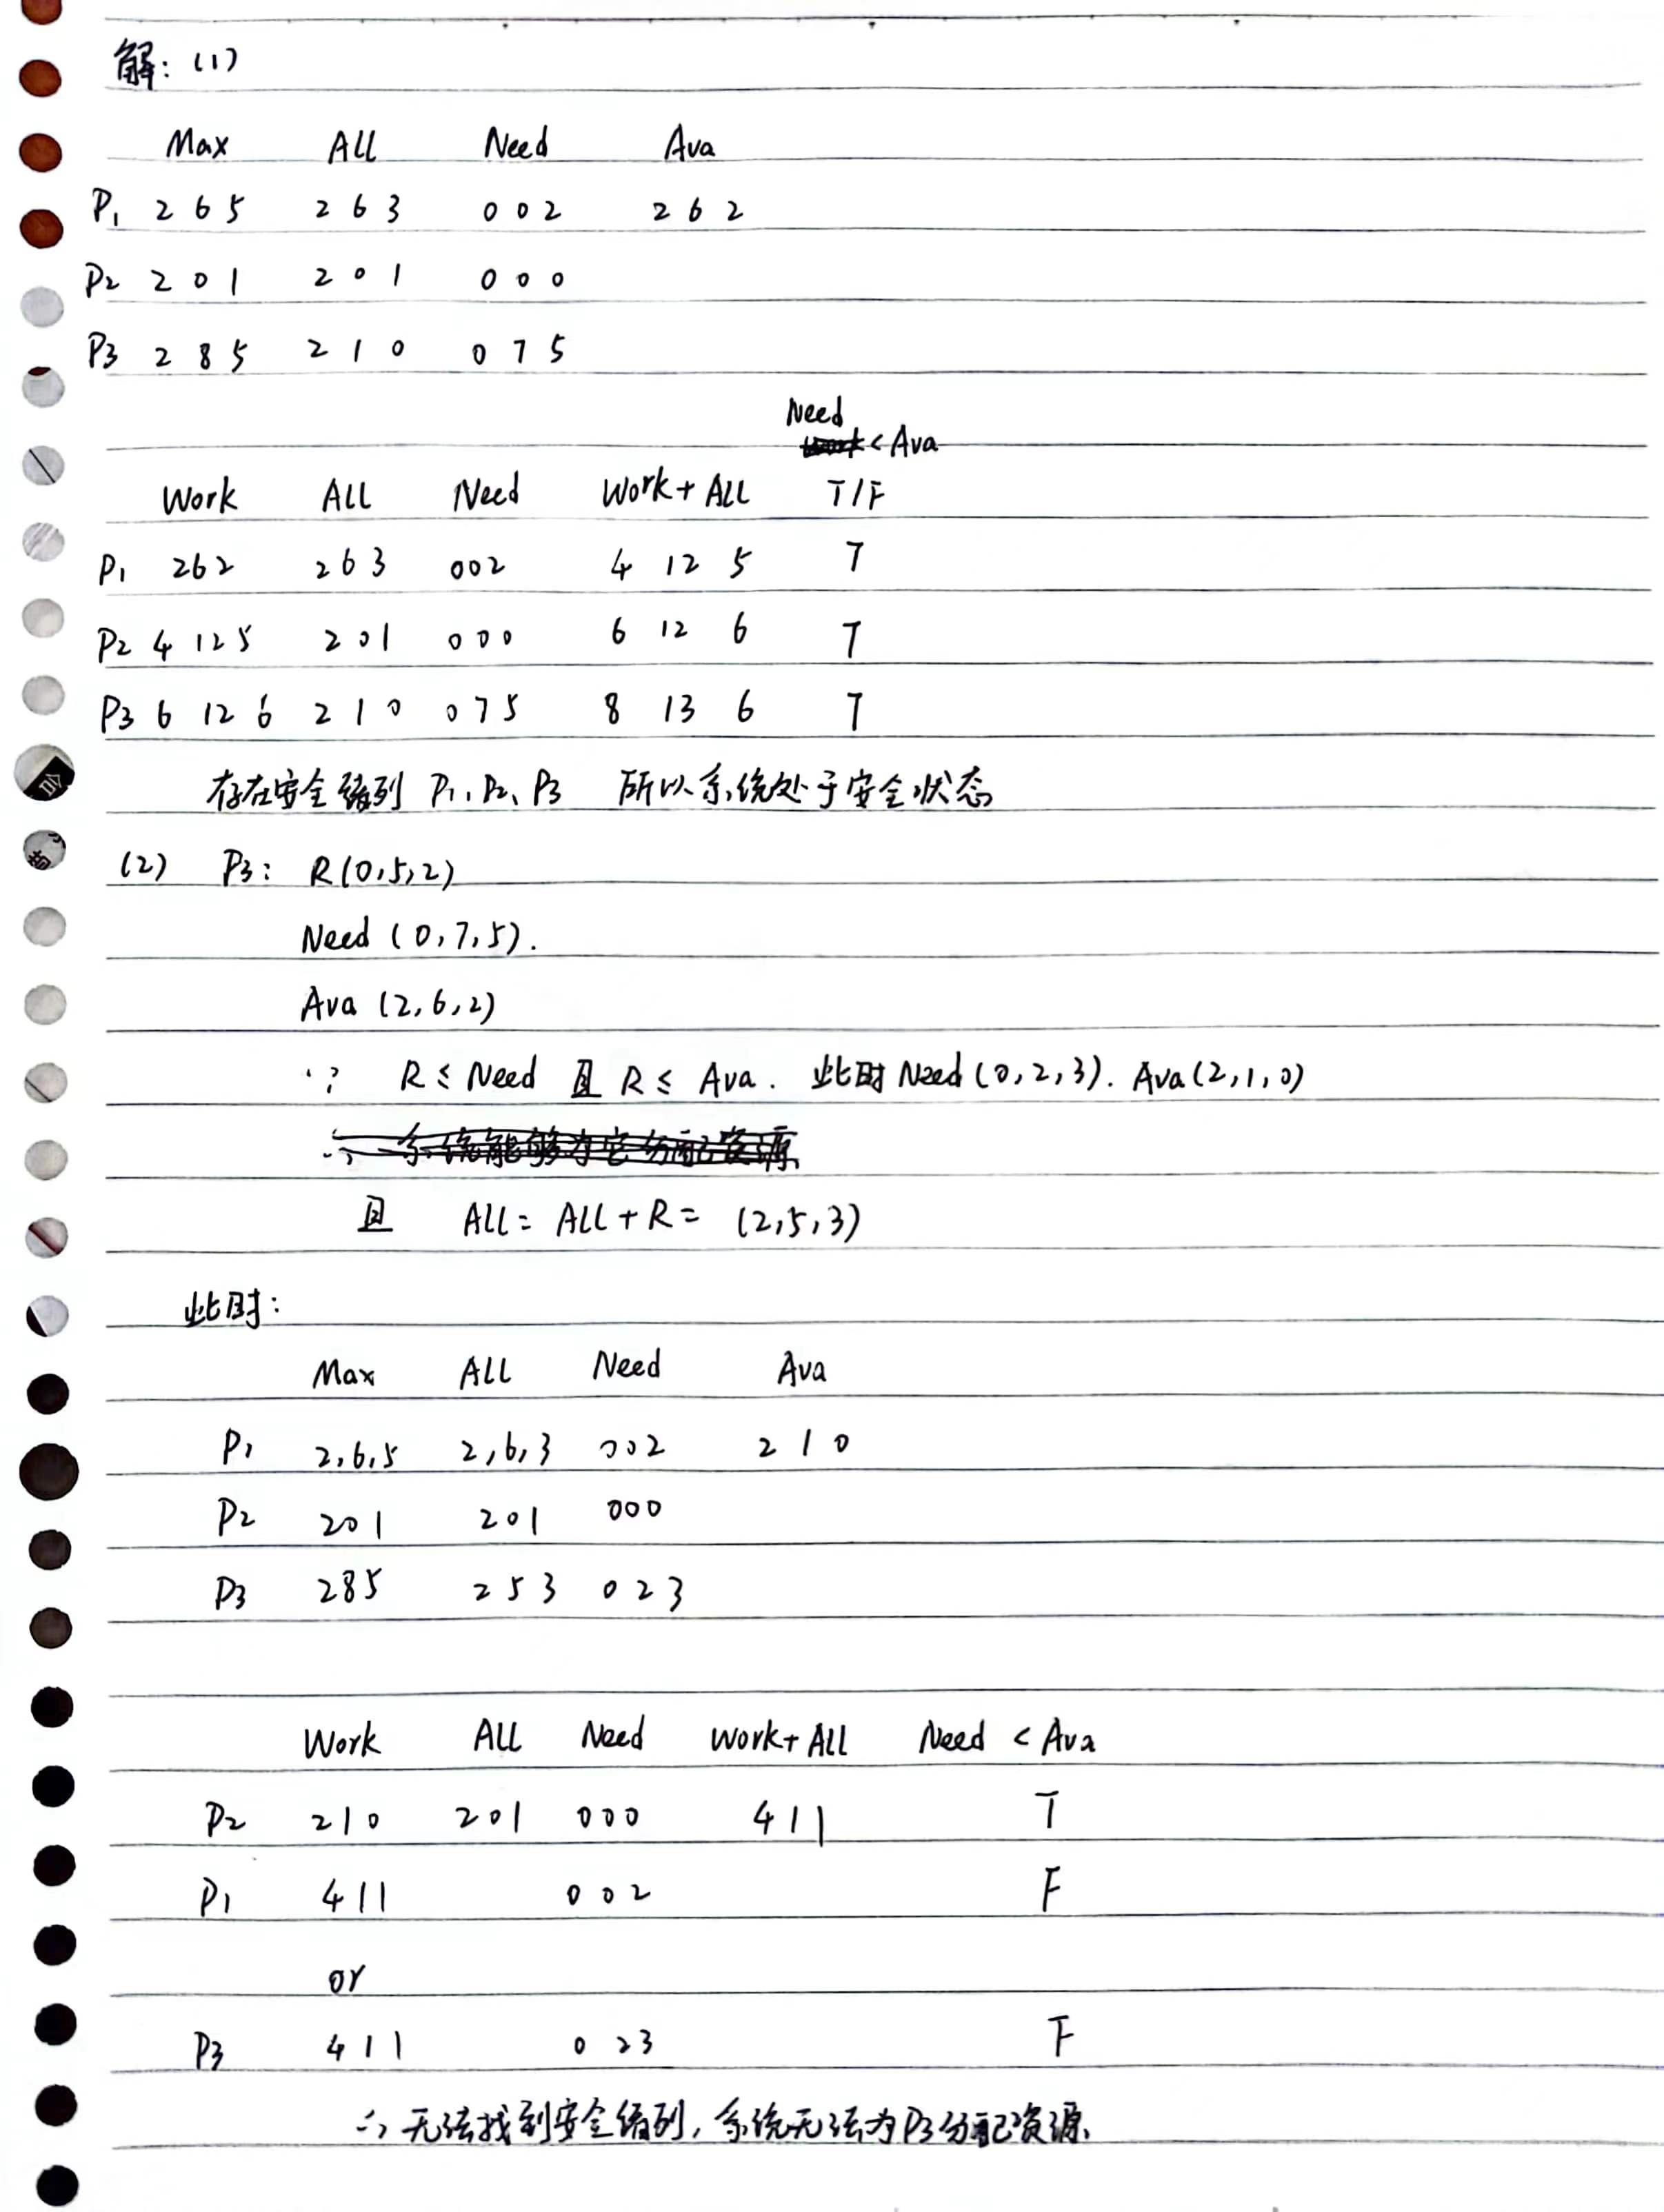 解: (1)
Max All Need Ava
P1 2 6 5 2 6 3 0 0 2 2 6 2
P2 2 0 1 2 0 1 0 0 0
P3 2 8 5 2 1 0 0 7 5
Need
< Ava
Work All Need Work + All T/F
P1 262 263 002 4 12 5 T
P2 4 12 5 201 000 6 12 6 T
P3 6 12 6 2 1 0 0 7 5 8 13 6 T
存在安全序列 P1、P2、P3 所以系统处于安全状态
(2) P3: R(0,5,2)
Need (0,7,5).
Ava (2,6,2)
∵ R ≤ Need 且 R ≤ Ava. 此时 Need (0,2,3). Ava(2,1,0)
∴ 系统能够为它分配资源
且 All = All + R = (2,5,3)
此时:
Max All Need Ava
P1 2,6,5 2,6,3 002 2 1 0
P2 201 201 000
P3 285 2 5 3 0 2 3
Work All Need Work+ All Need < Ava
P2 210 201 000 411 T
P1 411 0 0 2 F
or
P3 4 1 1 0 23 F
∴ 无法找到安全序列, 系统无法为P3分配资源.